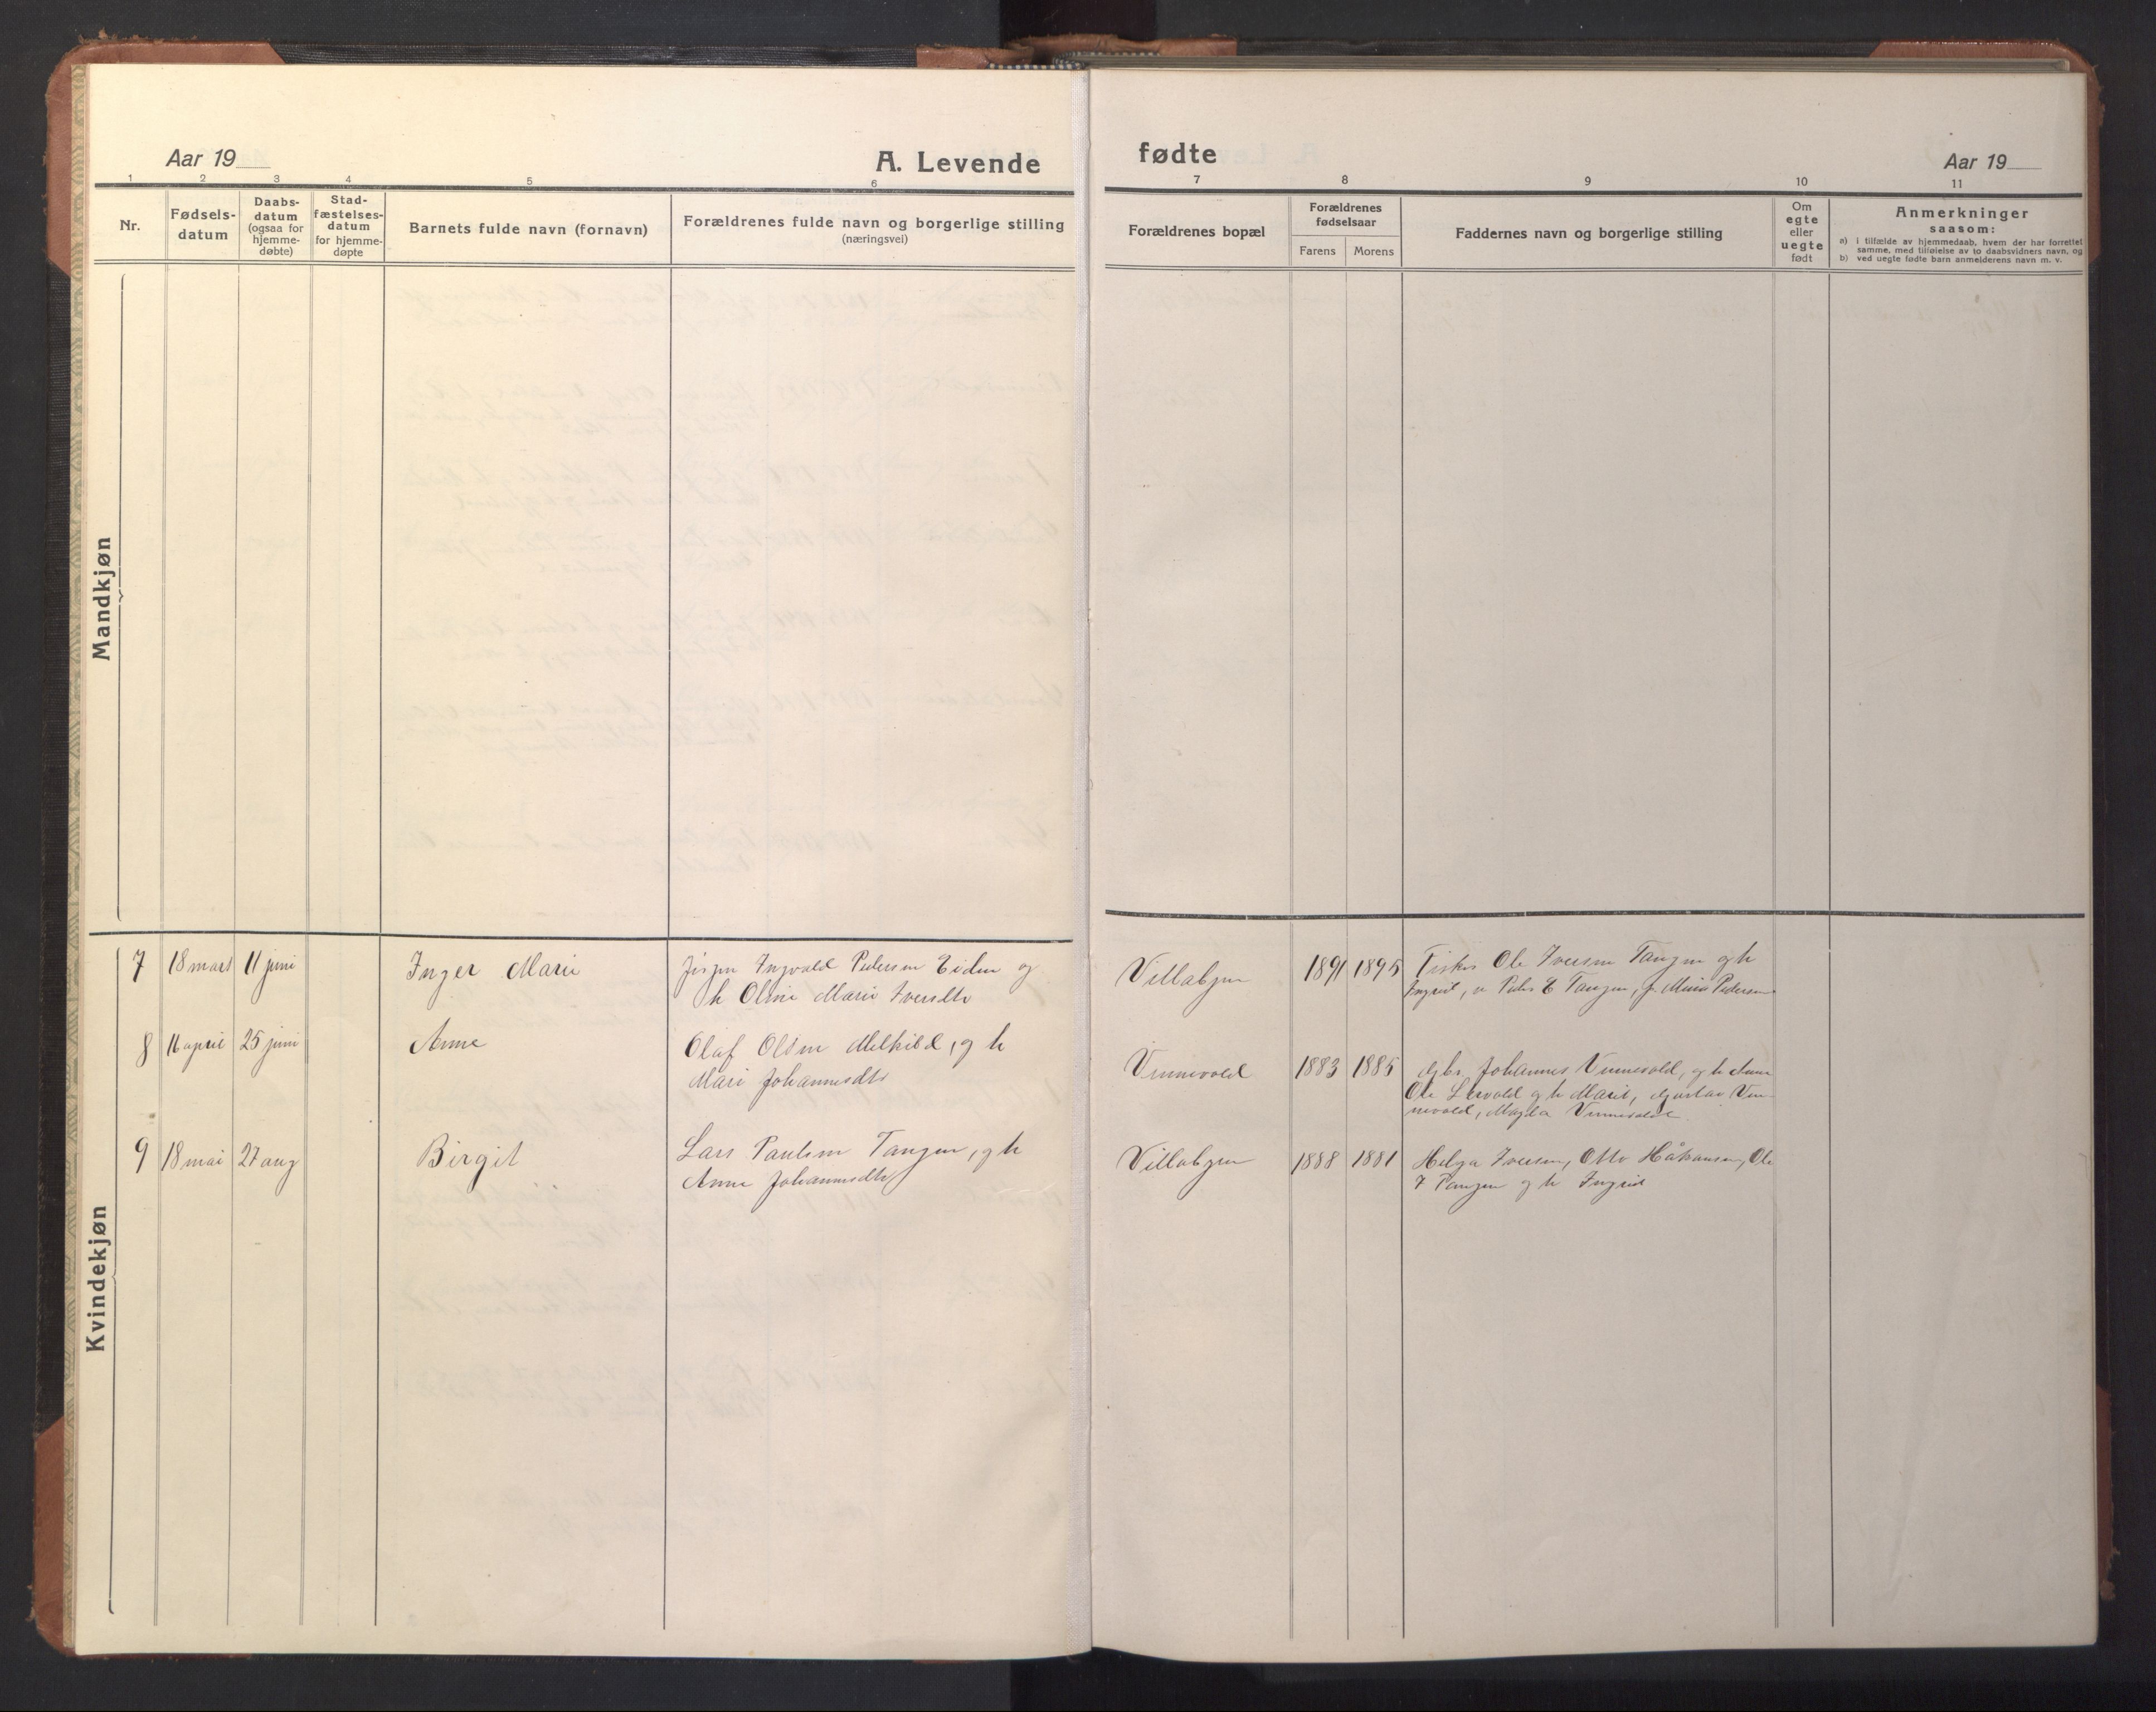 Aar 19
A. Levende
fødte
Aar 19
1 2 3 4 5 6 7 8 9 10 11
Nr.
Fødsels-
datum
Daabs-
datum
(ogsaa for
hjemme-
døbte)
Stad-
fæstelses-
datum
for hjemme-
døpte
Barnets fulde navn (fornavn)
Forældrenes fulde navn og borgerlige stilling
(næringsvei)
Forældrenes bopæl
Forældrenes
fødselsaar
Farens Morens
Faddernes navn og borgerlige stilling
Om
egte
eller
uegte
født
Anmerkninger
saasom:
a) i tilfælde av hjemmedaab, hvem der har forrettet
samme, med tilføielse av to daabsvidners navn, og
b) ved uegte fødte barn anmelderens navn m. v.
Mandkjøn
Kvindekjøn
7 18 mars 11 juni Inger Marie Jørgen Ingvald Pedersen Eiden og
h Oline Marie Iversdtr
Villabyen 1891 1895 Fisker Ole Iversen Tangen og h
Ingrid, Peder E Tangen, p. Pedersen
8 16 april 25 juni Anne Olaf Olsen Melkild, og h
Mari Johannesdtr
Vinnevold 1883 1885 Johannes Vinnevold, og h Anne
Ole og h Marit, Gustav Vin-
nevold, Magda Vinnevold
9 18 mai 27 aug Birgit Lars Paulsen Tangen, og h
Anne Johannesdtr
Villabyen 1888 1881 Helga Iversen, Otto Håkansen, Ole
I Tangen og h Ingrid